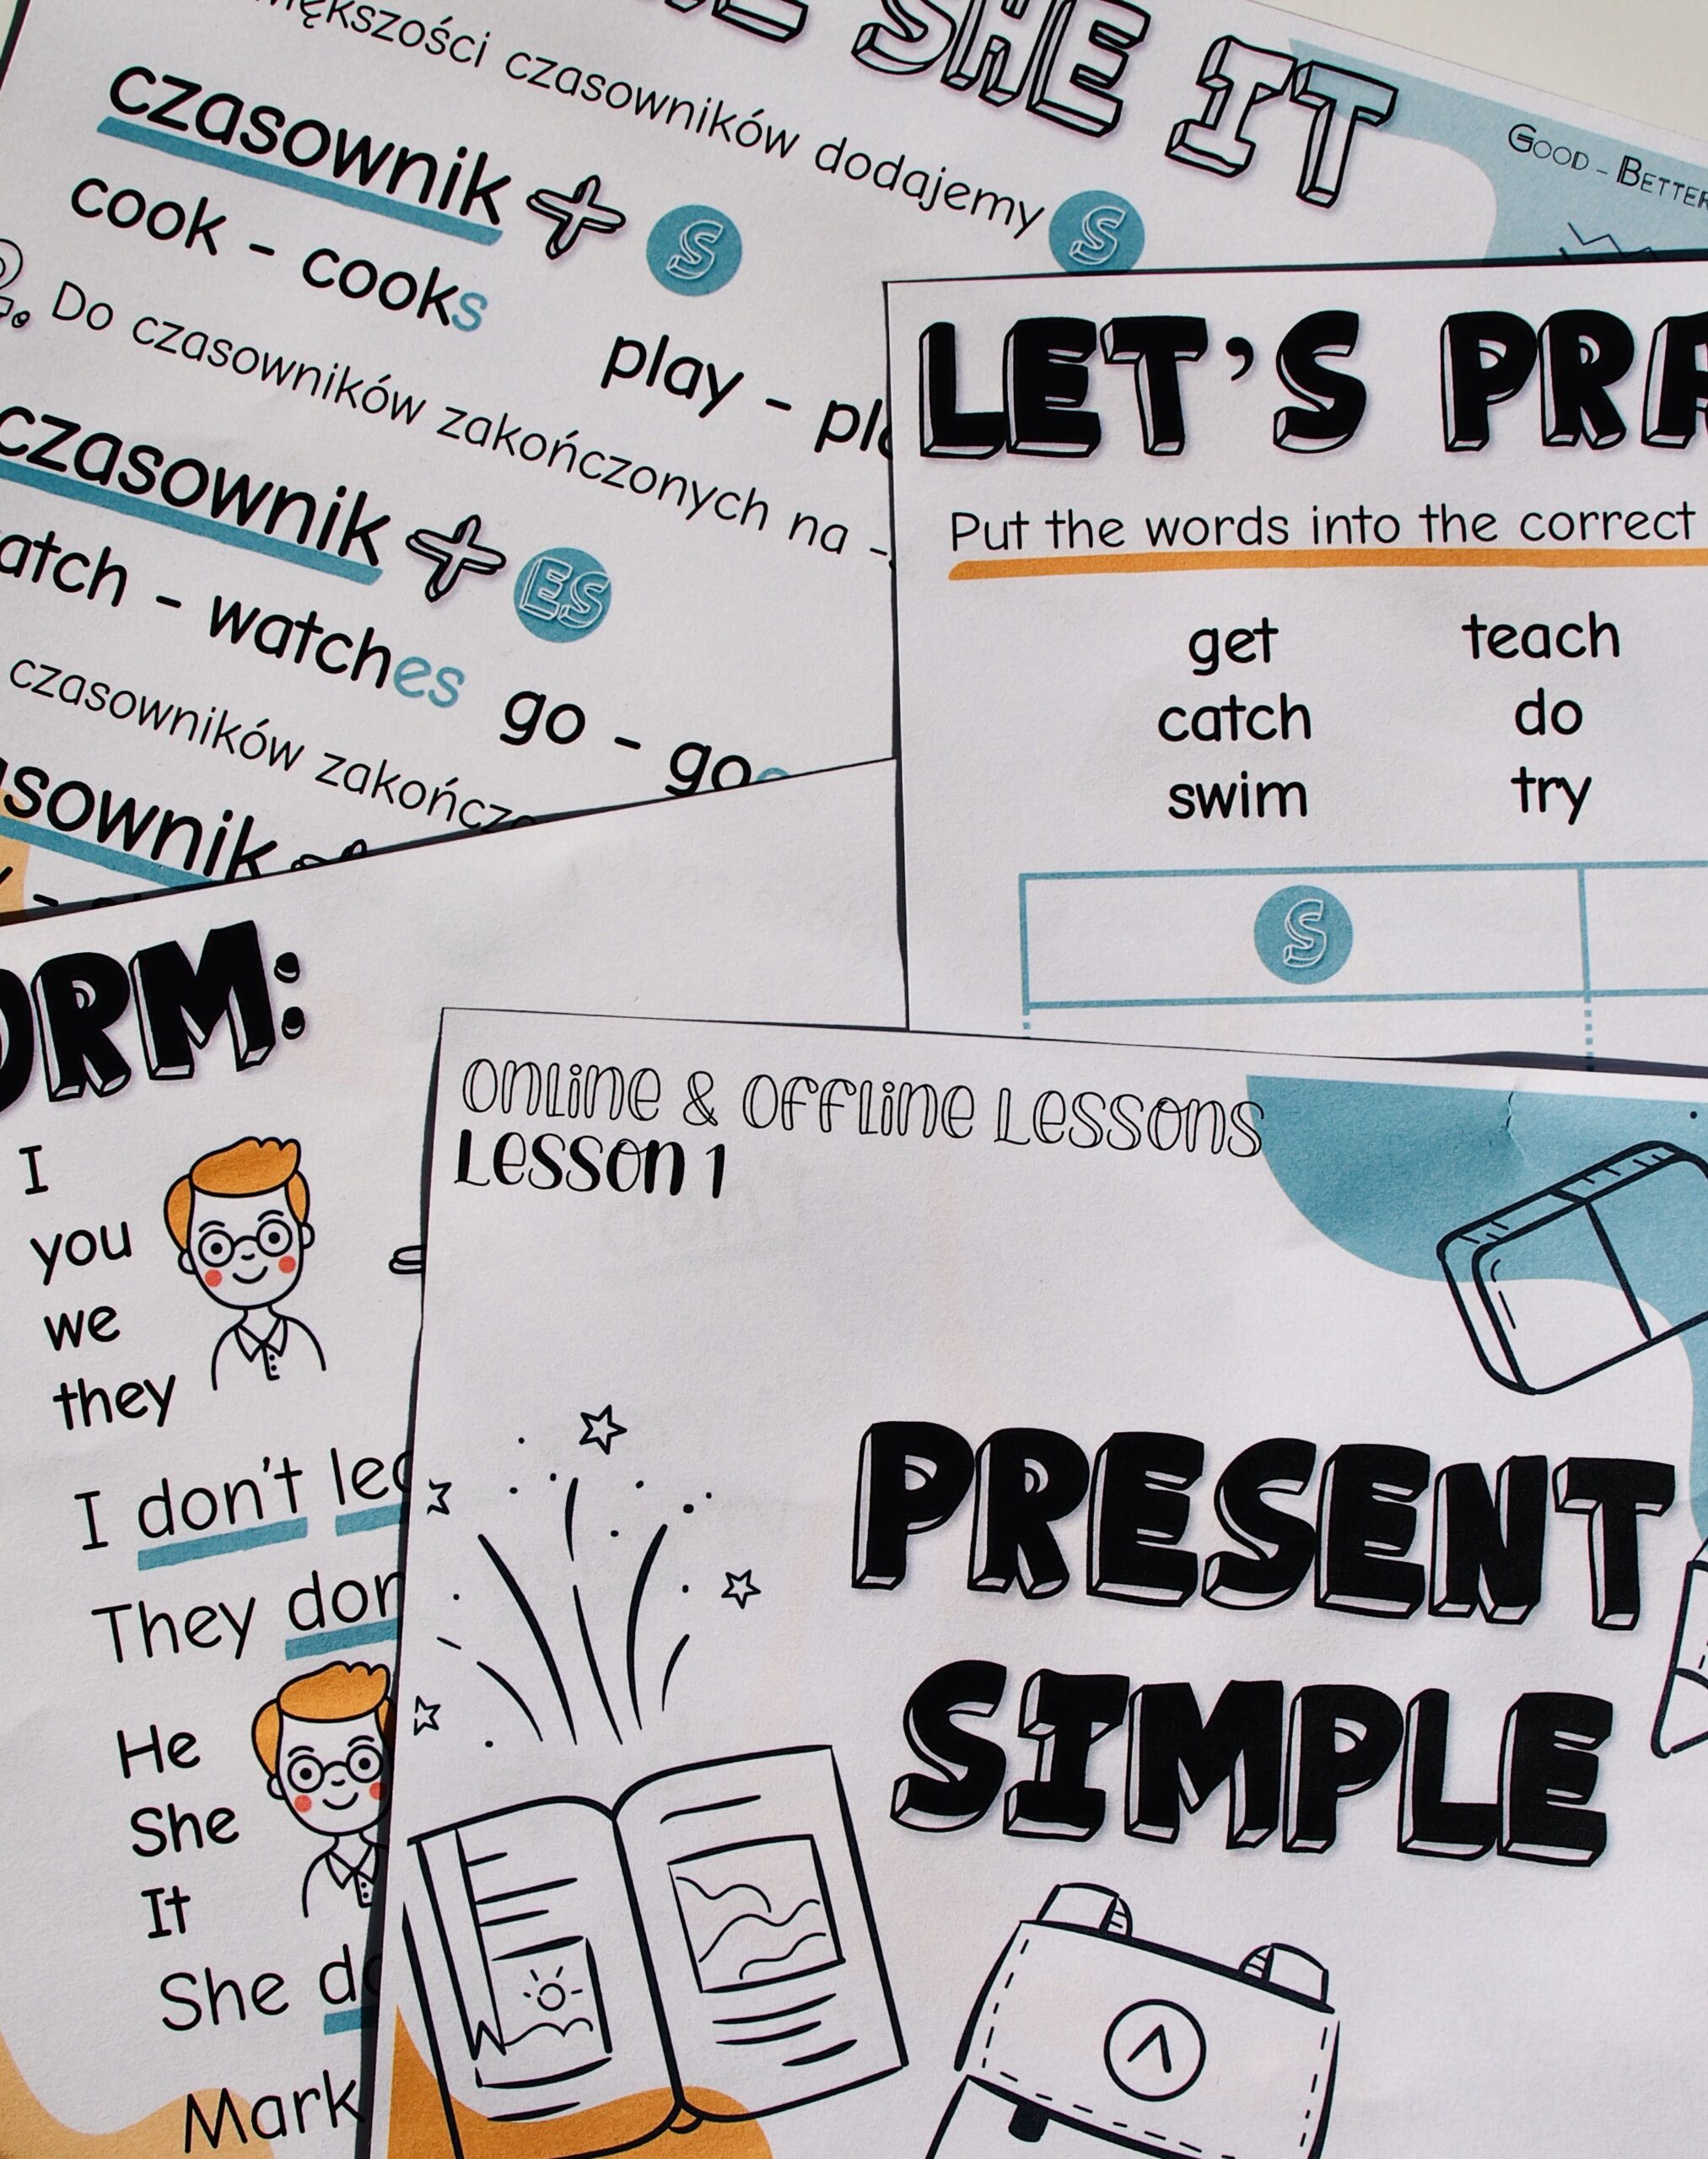 SHE IT
czasowników dodajemy S
czasownik + S
cook - cooks
play -
Do czasowników zakończonych na -
czasownik + ES
- watches
go -
czasowników
GOOD - BETTER
LET'S
Put the words into the correct
get teach
catch do
swim try
S
I
you
we
they
I don't
They
He
She
It
She
Mark
Online & Offline Lessons
Lesson 1
PRESENT
SIMPLE